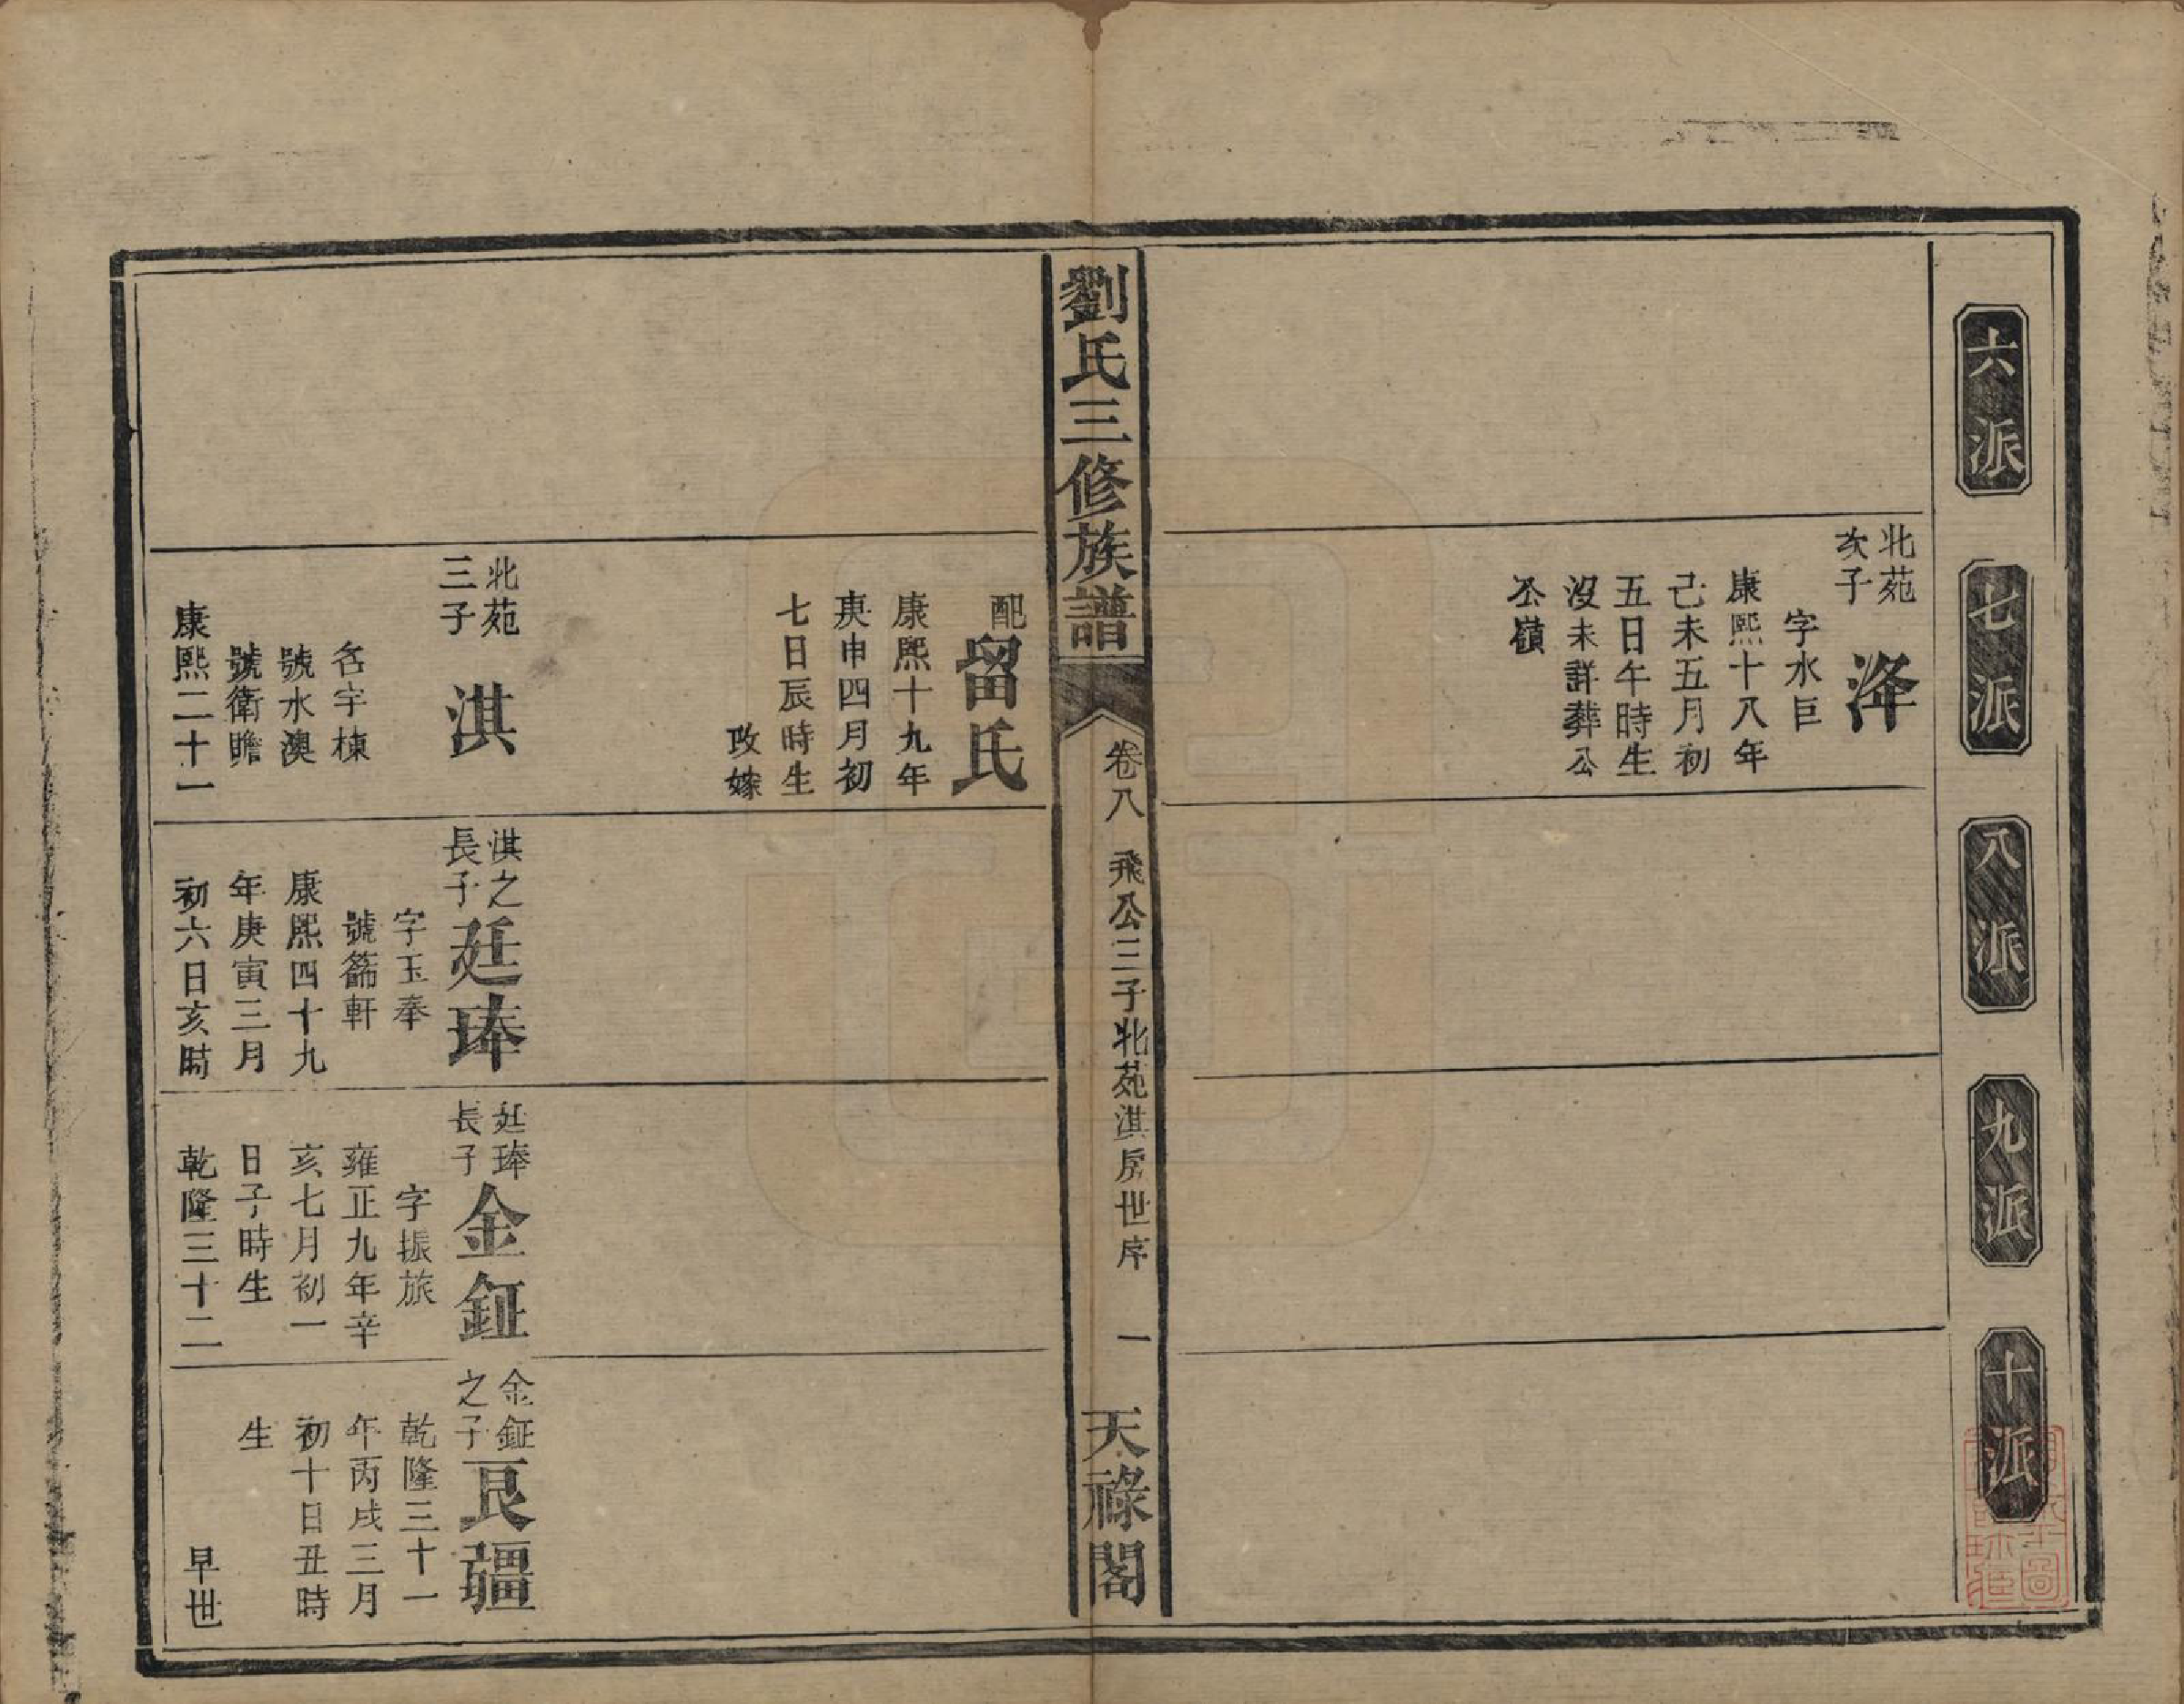 六派
七派
八派
九派
十派
北苑
次子
洚
字水巨
康熙十八年
己未五月初
五日午時生
沒未詳葬公
公嶺
劉氏三修族譜
卷八
飛公三子北苑淇房世序
一
天祿閣
配
留氏
康熙十九年
庚申四月初
七日辰時生
改嫁
北苑
三子
淇
名宇棟
號水澳
號衛瞻
康熙二十一
淇之
長子
廷琫
字玉奉
號籂軒
康熙四十九
年庚寅三月
初六日亥時
廷琫
長子
金鉦
字振旅
雍正九年辛
亥七月初一
日子時生
乾隆三十二
金鉦
之子
艮疆
乾隆三十一
年丙戌三月
初十日丑時
生
早世